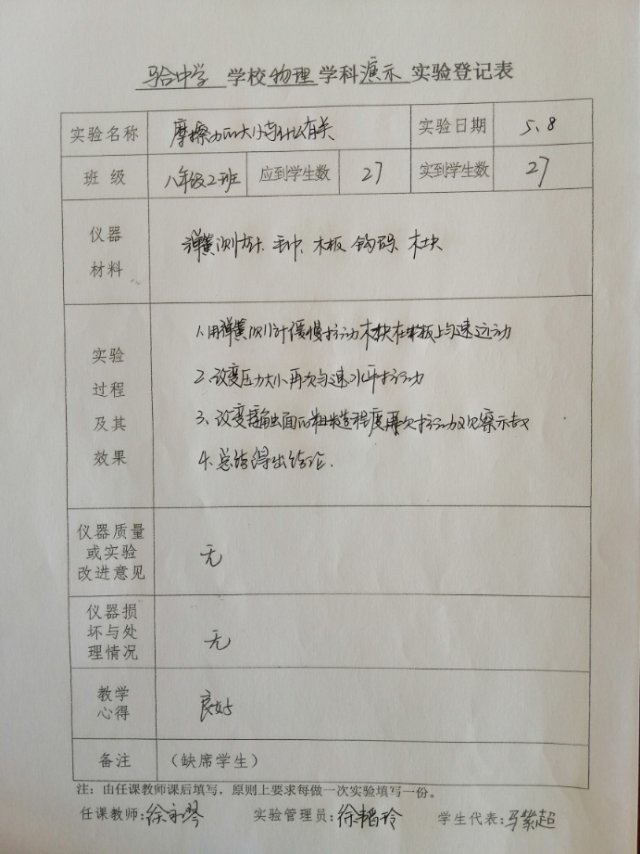 马合中学 学校 物理 学科 演示 实验登记表
实验名称 摩擦力的大小与什么有关 实验日期 5.8
班 级 八年级2班 应到学生数 27 实到学生数 27
仪器
材料
弹簧测力计、毛巾、木板 钩码 木块
实验
过程
及其
效果
1.用弹簧测力计缓慢拉动木块在木板上匀速运动
2、改变压力大小再次匀速水平拉动
3、改变接触面的粗糙程度再次拉动观察示数
4.总结得出结论.
仪器质量
或实验
改进意见
无
仪器损
坏与处
理情况
无
教学
心得
良好
备注 (缺席学生)
注:由任课教师课后填写,原则上要求每做一次实验填写一份。
任课教师:徐琴 实验管理员:徐玲 学生代表:马紫超